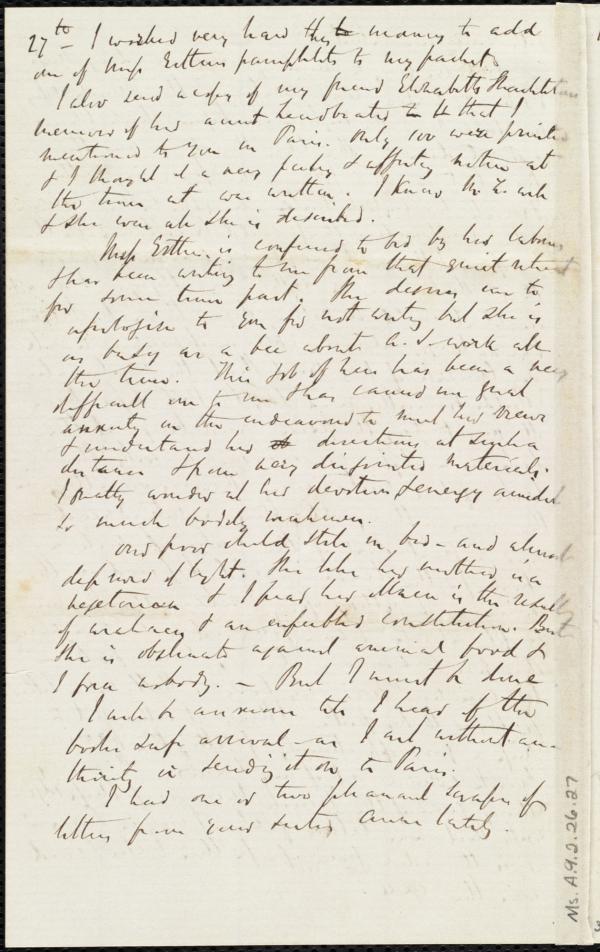 27th – I worked very hard this morning to add
one of Miss Estlin's pamphlets to my packet.
I also send a copy of my friend Elizabeth
memoir of her aunt to H that I
mentioned to you in Paris. Only 100 were printed
& I thought it a very pretty & affecting notice at
the time it was written. I knew Mrs. E. well
& she was all she is described.
Miss Estlin is confined to bed by her labours
& has been writing to me from that quiet retreat
for some time past. She desires me to
apologise to you for not writing but she is
as busy as a bee about A. S. work all
the time. This job of hers has been a very
difficult one to me & has caused me great
anxiety in the endeavour to meet her views
& understand her directions at such a
distance & from very disjointed materials.
I really wonder at her devotion & energy amidst
so much bodily weakness.
Our poor child still in bed – and almost
deprived of light. She like her mother is a
vegetarian & I fear her illness is the result
of weakness & an enfeebled constitution. But
she is obstinate against animal food &
I force nobody. – But I must be done
I will be anxious till I hear of the
books safe arrival – as I act without au-
thority in sending it on to Paris.
I had one or two pleasant scraps of
letters from your sister Anne lately.
Ms. A.9.2.26.27
3